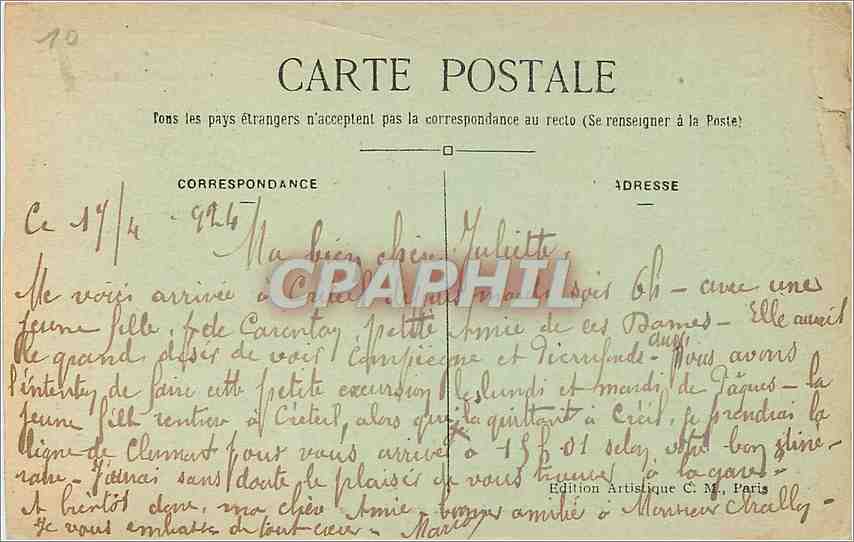 10
CARTE POSTALE
Tous les pays étrangers n'acceptent pas la correspondance au recto (Se renseigner à la Poste)
CORRESPONDANCE
ADRESSE
Ce 17/4 - 924
Ma bien chère Juliette,
CPARAPHIL
Me voici arrivée à Créteil depuis mardi soir 6h - avec une
jeune fille, de Carentan, petite Amie de ces Dames - Elle aurait
le grand désir de voir Compiègne et Pierrefonds - Nous avons
l'intention de faire cette petite excursion les lundi et mardi de Pâques - la
jeune fille rentrera à Créteil, alors que la quittant à Creil, je prendrai la
ligne de Clermont pour vous arriver à 15h01 selon votre bon itiné-
raire - J'aurai sans doute le plaisir de vous trouver à la gare -
Edition Artistique C. M., Paris
A bientôt donc, ma chère Amie, bonne amitié à Monsieur
Je vous embrasse de tout cœur -